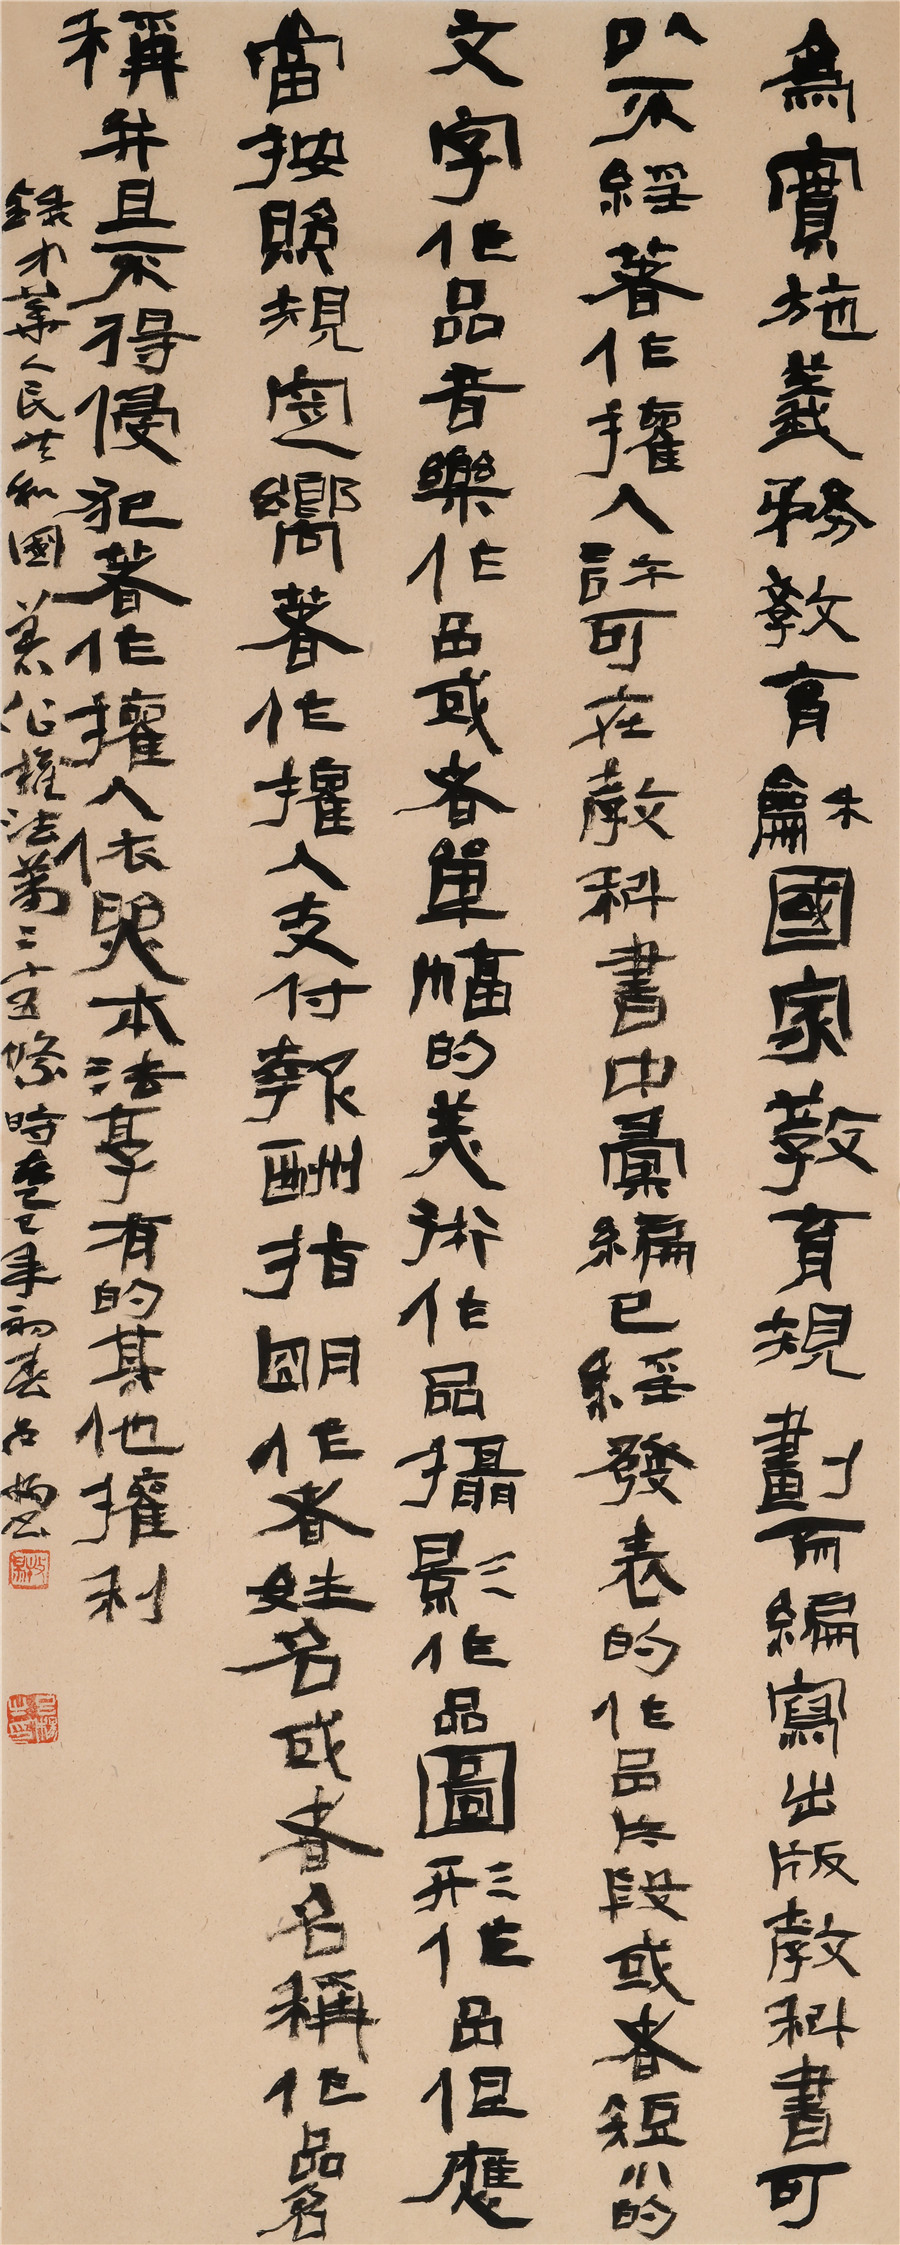 為實施義務教育龢國家教育規劃而編寫出版教科書可
以不經著作權人許可在教科書中彙編已經發表的作品片段或者短小的
文字作品音樂作品或者單幅的美術作品攝影作品圖形作品但應
當按照規定嚮著作權人支付報酬指明作者姓名或者名稱作品名
稱并且不得侵犯著作權人依照本法享有的其他權利
錄中華人民共和國著作權法第二十五條時在乙巳年初春呂